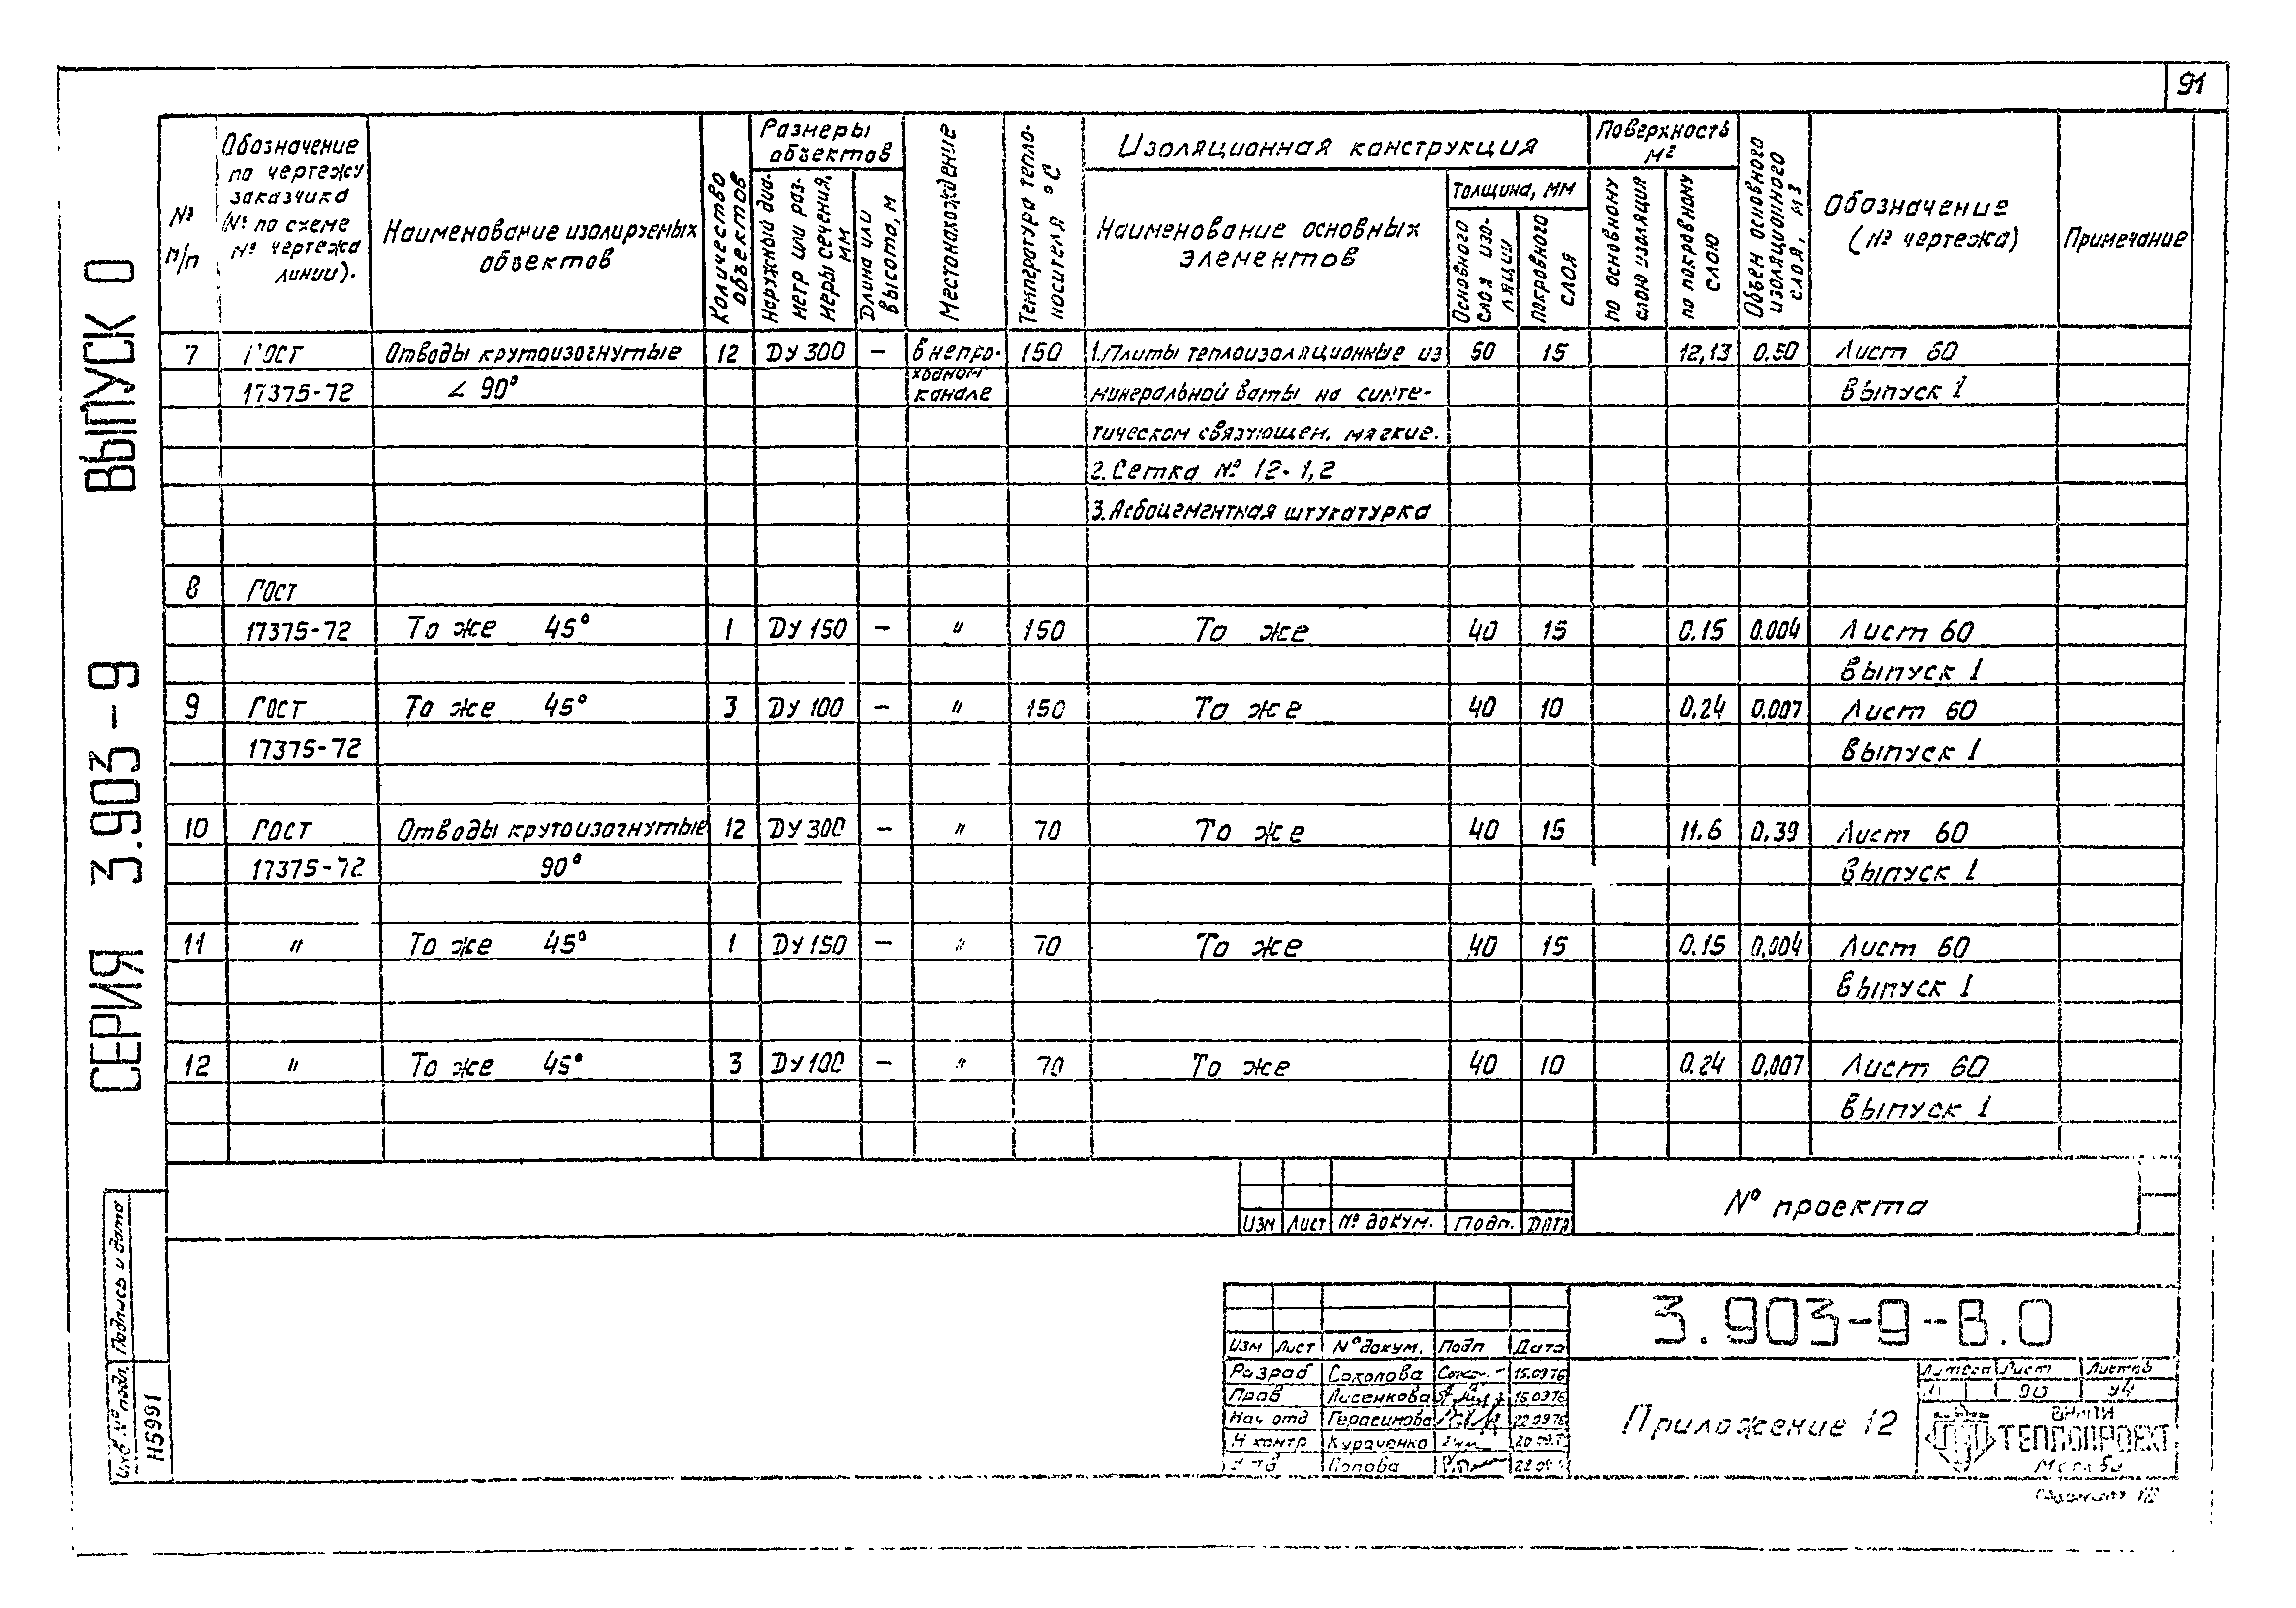 91
СЕРИЯ 3.903-9 ВЫПУСК 0
№ п/п
Обозначение
по чертежу
заказчика
(№ по схеме
№ чертежа
линии).
Наименование изолируемых
объектов
Количество
объектов
Размеры
объектов
Наружный диа-
метр или раз-
меры сечения,
мм
Длина или
высота, м
Местонахождение
Температура тепло-
носителя °С
Изоляционная конструкция
Наименование основных
элементов
Толщина, мм
Основного
слоя изо-
ляции
Покровного
слоя
Поверхность
м²
по основному
слою изоляции
по покровному
слою
Объем основного
изоляционного
слоя, м3
Обозначение
(№ чертежа)
Примечание
7 ГОСТ Отводы крутоизогнутые 12 Ду 300 – В непро- 150 1.Плиты теплоизоляционные из 50 15 12,13 0.50 Лист 60
17375-72 ∠ 90° ходном канале минеральной ваты на синте- Выпуск 1
тическом связующем, мягкие.
2.Сетка № 12-1,2
3.Асбоцементная штукатурка
8 ГОСТ
17375-72 То же 45° 1 Ду 150 – " 150 То же 40 15 0.15 0.004 Лист 60
Выпуск 1
9 ГОСТ То же 45° 3 Ду 100 – " 150 То же 40 10 0.24 0.007 Лист 60
17375-72 Выпуск 1
10 ГОСТ Отводы крутоизогнутые 12 Ду 300 – " 70 То же 40 15 11.6 0.39 Лист 60
17375-72 90° Выпуск 1
11 " То же 45° 1 Ду 150 – " 70 То же 40 15 0.15 0,004 Лист 60
Выпуск 1
12 " То же 45° 3 Ду 100 – " 70 То же 40 10 0.24 0,007 Лист 60
Выпуск 1
Изм Лист № докум. Подп. Дата
№ проекта
Инв № подл. Подпись и дата
Н5991
3.903-9-В.0
Изм Лист № докум. Подп Дата
Разраб Соколова 15.0976
Пров Лисенкова 15.0976
Нач отд Герасимова 22 0976
Н контр Кураченко
Попова
Приложение 12
Литера Лист Листов
90 94
ВНИПИ
ТЕПЛОПРОЕКТ
Москва
Формат 12